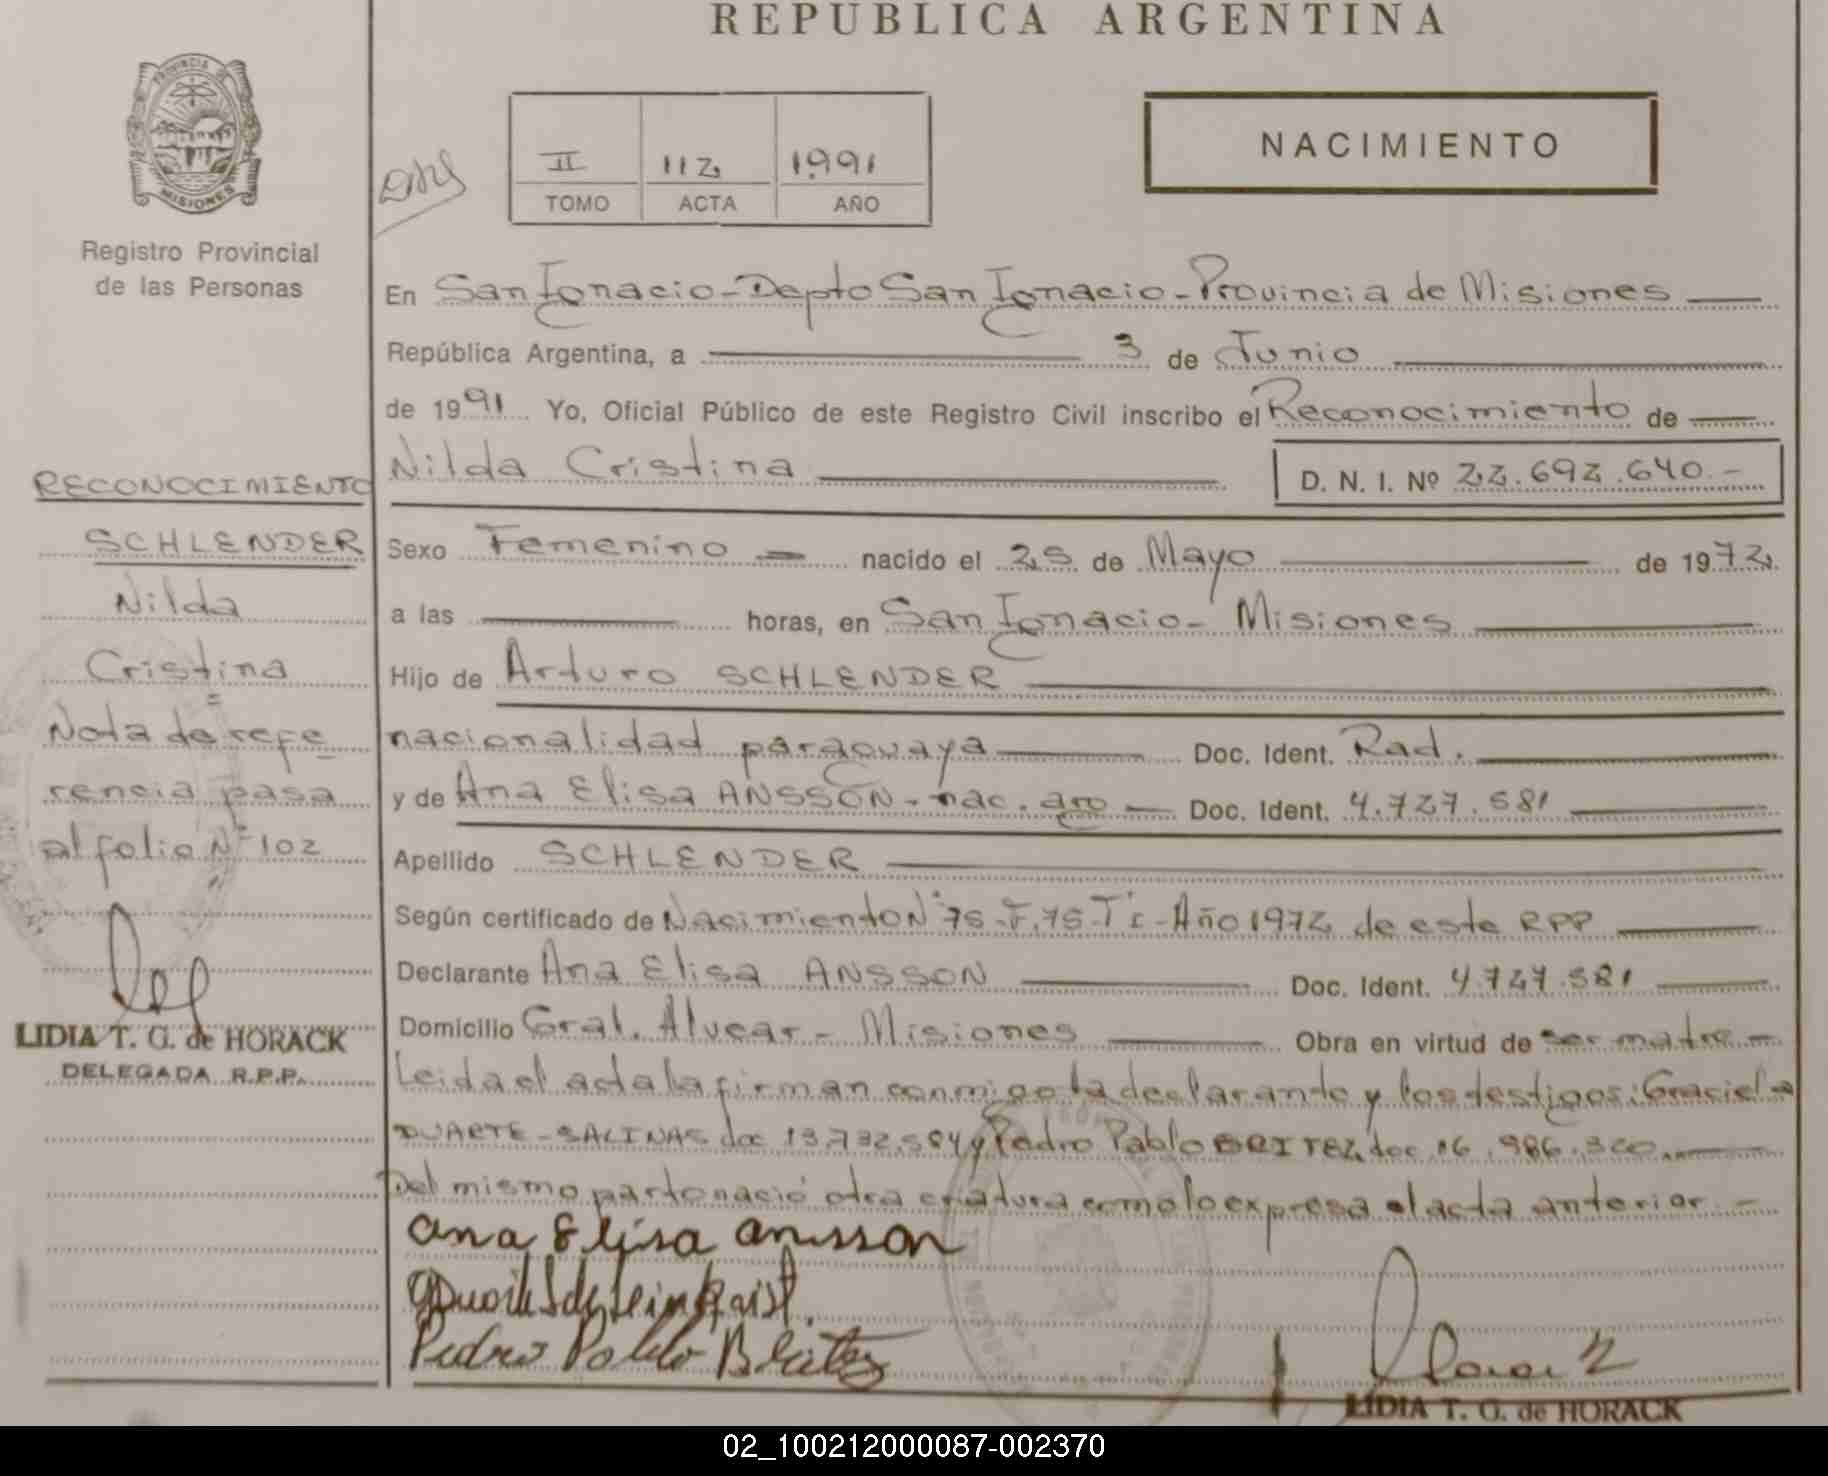 REPUBLICA ARGENTINA
PROVINCIA DE
MISIONES
Registro Provincial
de las Personas
II 112 1991
TOMO ACTA AÑO
NACIMIENTO
En San Ignacio-Depto San Ignacio-Provincia de Misiones
República Argentina, a 3 de Junio
de 1991 Yo, Oficial Público de este Registro Civil inscribo el Reconocimiento de
Nilda Cristina D. N. I. Nº 22.692.640.-
Sexo Femenino nacido el 25 de Mayo de 1972
a las horas, en San Ignacio- Misiones
Hijo de Arturo SCHLENDER
nacionalidad paraguaya Doc. Ident. Rad.
y de Ana Elisa ANSSON-nac. arg Doc. Ident. 4.727.581
Apellido SCHLENDER
Según certificado de Nacimiento Nº75-F.75-Tº I-Año 1972 de este RPP
Declarante Ana Elisa ANSSON Doc. Ident. 4.727.581
Domicilio Gral. Alvear- Misiones Obra en virtud de ser madre-
Leida el acta la firman conmigo la declarante y los testigos: Graciela
DUARTE-SALINAS doc 13.732.594 y Pedro Pablo BRITEZ doc 16.986.320.
Del mismo parto nació otra criatura como lo expresa el acta anterior.-
Ana Elisa Ansson
Pedro Pablo Britez
LIDIA T. G. de HORACK
RECONOCIMIENTO
SCHLENDER
Nilda
Cristina
Nota de refe
rencia pasa
al folio Nº 102
LIDIA T. G. de HORACK
DELEGADA R.P.P.
02_100212000087-002370